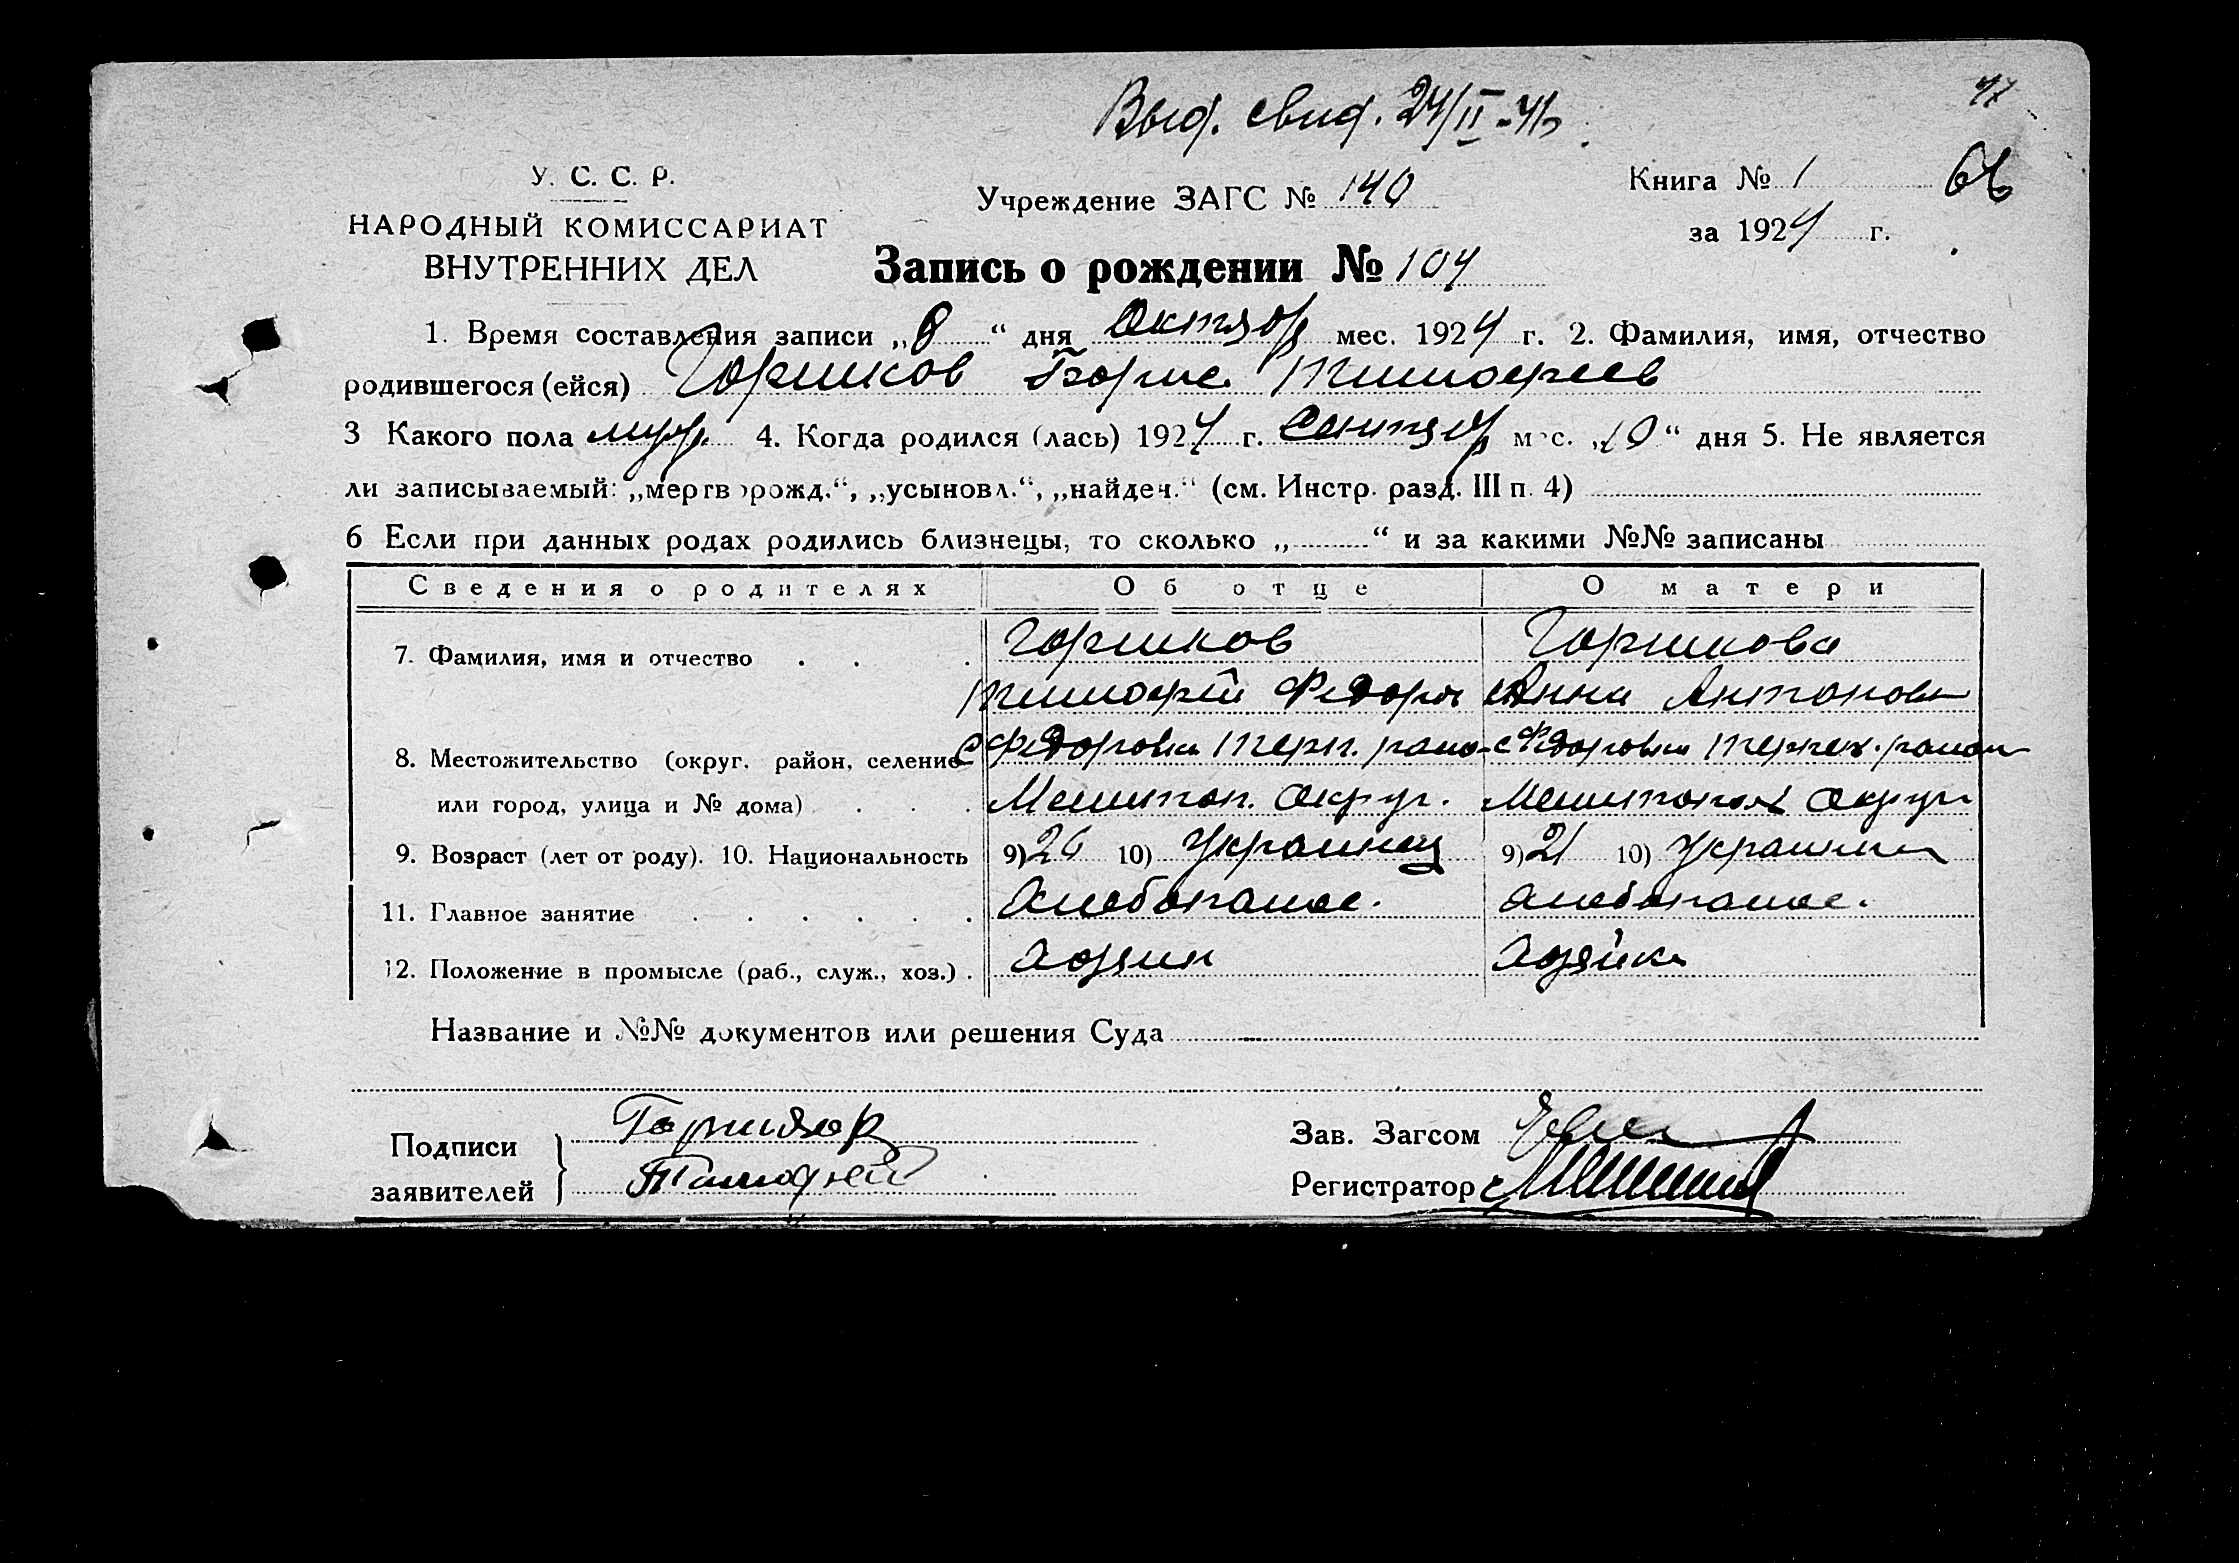 Выд. свид. 24/II-46
У. С. С. Р.
НАРОДНЫЙ КОМИССАРИАТ
ВНУТРЕННИХ ДЕЛ
Учреждение ЗАГС № 140
Книга № 1
за 1924 г.
Запись о рождении № 104
1. Время составления записи „8“ дня Октяб мес. 1924 г. 2. Фамилия, имя, отчество
родившегося (ейся) Горшков Борис Тимофеев
3 Какого пола муж. 4. Когда родился (лась) 1924 г. Сентяб мес. „10“ дня 5. Не является
ли записываемый: „мертворожд.“, „усыновл.“, „найден.“ (см. Инстр. разд. III п. 4)
6 Если при данных родах родились близнецы, то сколько „ “ и за какими №№ записаны
Сведения о родителях Об отце О матери
7. Фамилия, имя и отчество Горшков Горшкова
Тимофей Федоров Анна Антонов
8. Местожительство (округ, район, селение с Федоровка Терп. район с Федоровка Терпен. район
или город, улица и № дома) Мелитоп. округ. Мелитополь округ
9. Возраст (лет от роду). 10. Национальность 9) 26 10) Украинец 9) 21 10) Украинка
11. Главное занятие Хлебопаш. хлебопаш.
12. Положение в промысле (раб., служ., хоз.) хозяин хозяйка
Название и №№ документов или решения Суда
Подписи
заявителей
Горшков
Тимофей
Зав. Загсом
Регистратор